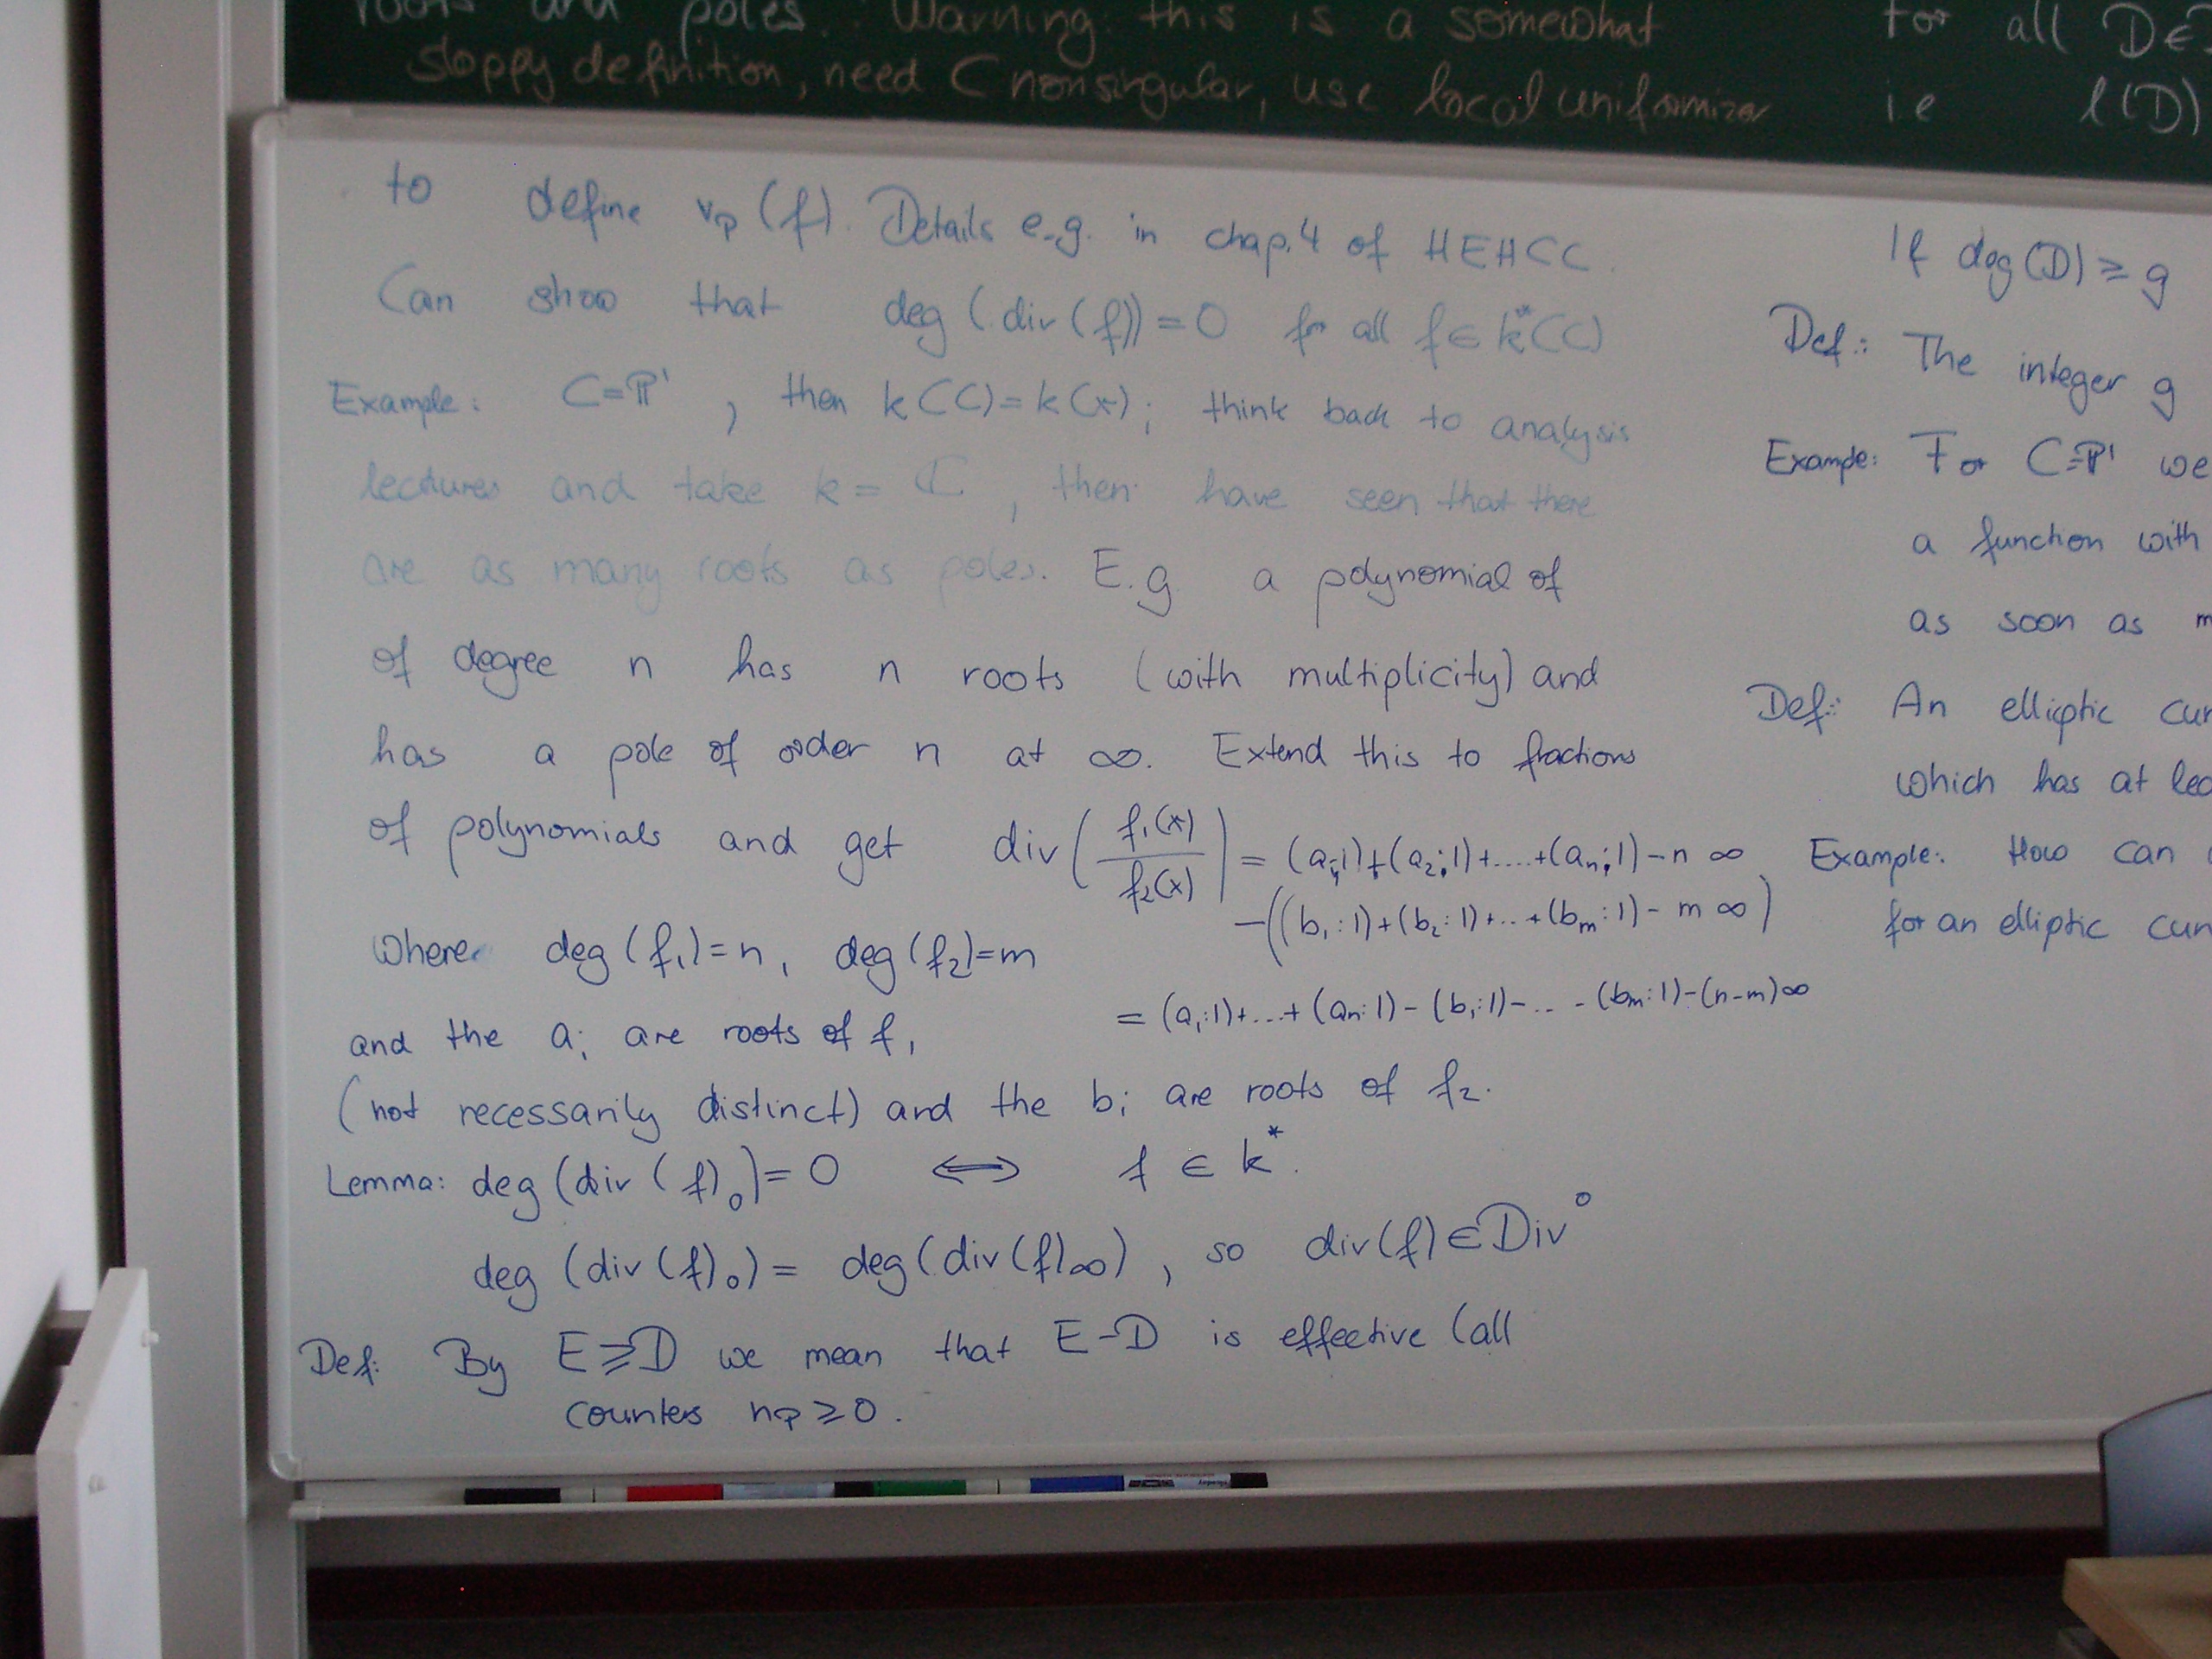 roots and poles. Warning: this is a somewhat
sloppy definition, need C nonsingular, use local uniformizer
to define v_P(f). Details e.g. in chap. 4 of HEHCC.
Can show that deg(div(f))=0 for all f∈k*(C)
Example: C=ℙ¹, then k(C)=k(x); think back to analysis
lectures and take k=ℂ, then have seen that there
are as many roots as poles. E.g a polynomial of
of degree n has n roots (with multiplicity) and
has a pole of order n at ∞. Extend this to fractions
of polynomials and get div(f₁(x)/f₂(x)) = (a₁:1)+(a₂:1)+....+(aₙ:1)-n∞
-((b₁:1)+(b₂:1)+...+(bₘ:1)-m∞)
where deg(f₁)=n, deg(f₂)=m
= (a₁:1)+...+(aₙ:1)-(b₁:1)-...-(bₘ:1)-(n-m)∞
and the aᵢ are roots of f₁
(not necessarily distinct) and the bᵢ are roots of f₂.
Lemma: deg(div(f)₀)=0 ⟺ f∈k*.
deg(div(f)₀)=deg(div(f)∞), so div(f)∈Div⁰
Def: By E≥D we mean that E-D is effective (all
counters n_P≥0.
for all D∈
i.e l(D)
If deg(D)≥g
Def.: The integer g
Example: For C=ℙ¹ we
a function with
as soon as
Def.: An elliptic
which has at
Example: How can
for an elliptic